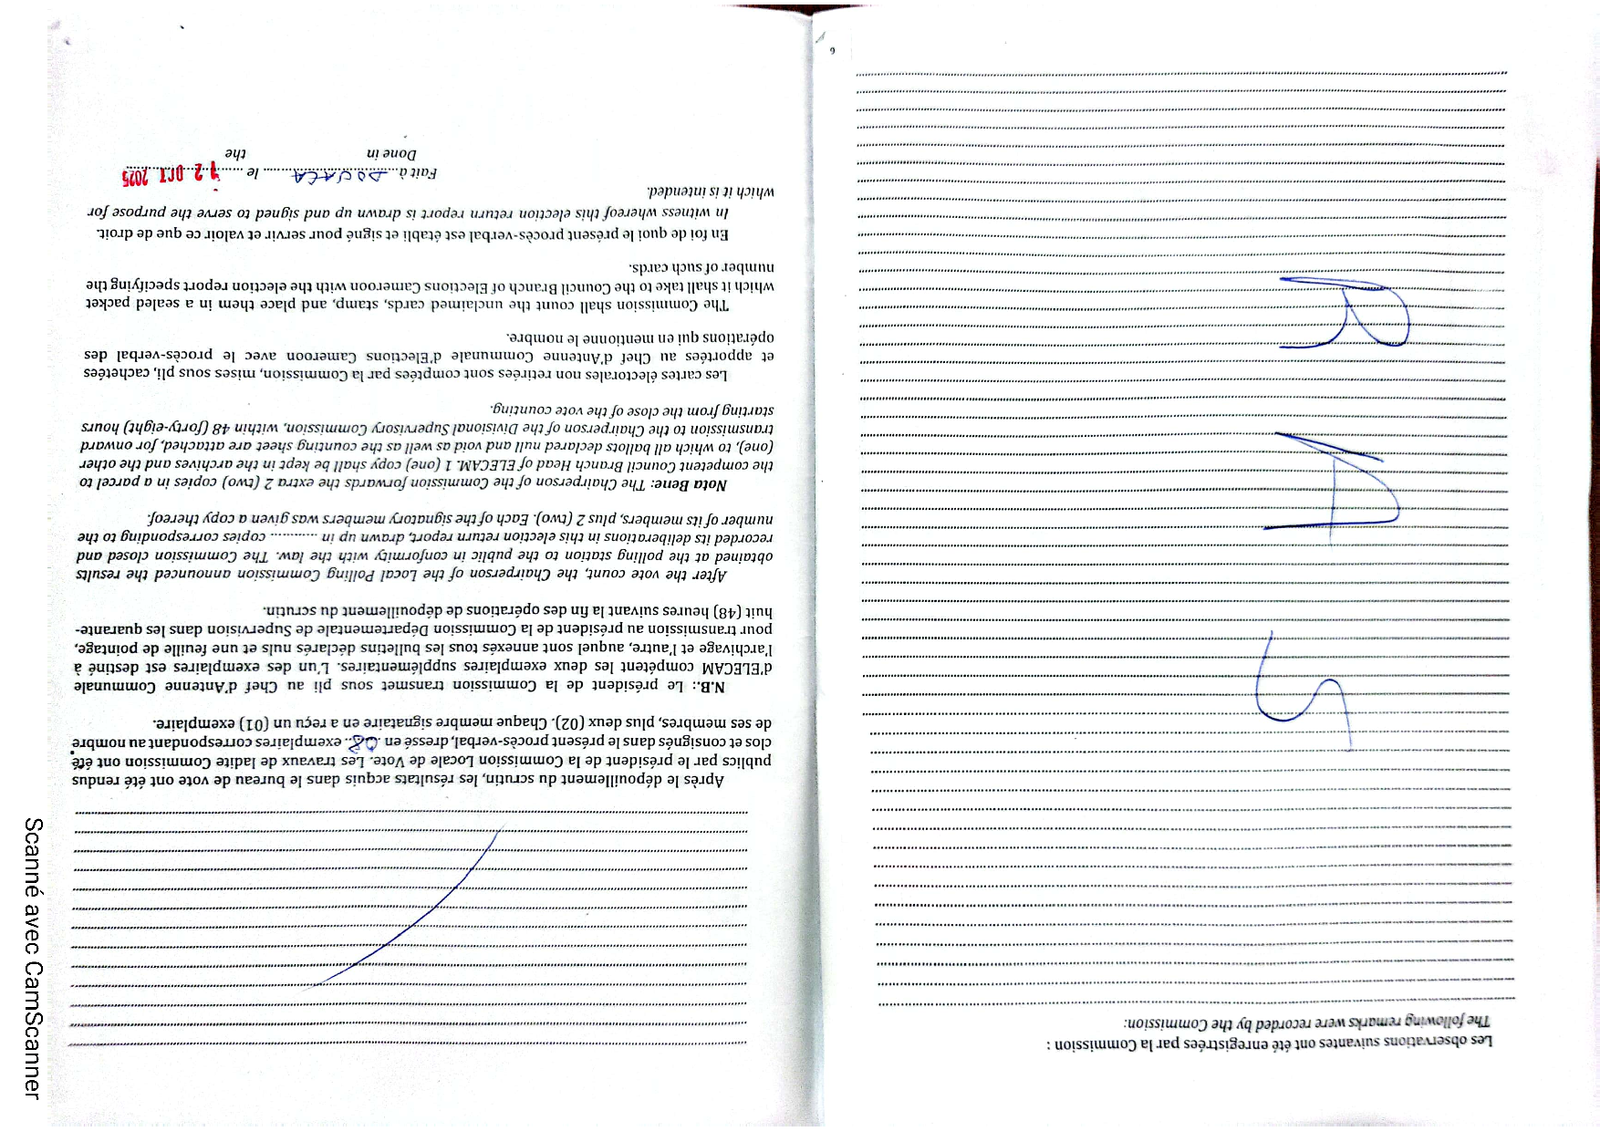 Les observations suivantes ont été enregistrées par la Commission :
The following remarks were recorded by the Commission:
RAS
Après le dépouillement du scrutin, les résultats acquis dans le bureau de vote ont été rendus
publics par le président de la Commission Locale de Vote. Les travaux de ladite Commission ont été
clos et consignés dans le présent procès-verbal, dressé en 08 exemplaires correspondant au nombre
de ses membres, plus deux (02). Chaque membre signataire en a reçu un (01) exemplaire.
N.B.: Le président de la Commission transmet sous pli au Chef d'Antenne Communale
d'ELECAM compétent les deux exemplaires supplémentaires. L'un des exemplaires est destiné à
l'archivage et l'autre, auquel sont annexés tous les bulletins déclarés nuls et une feuille de pointage,
pour transmission au président de la Commission Départementale de Supervision dans les quarante-
huit (48) heures suivant la fin des opérations de dépouillement du scrutin.
After the vote count, the Chairperson of the Local Polling Commission announced the results
obtained at the polling station to the public in conformity with the law. The Commission closed and
recorded its deliberations in this election return report, drawn up in ............ copies corresponding to the
number of its members, plus 2 (two). Each of the signatory members was given a copy thereof.
Nota Bene: The Chairperson of the Commission forwards the extra 2 (two) copies in a parcel to
the competent Council Branch Head of ELECAM. 1 (one) copy shall be kept in the archives and the other
(one), to which all ballots declared null and void as well as the counting sheet are attached, for onward
transmission to the Chairperson of the Divisional Supervisory Commission, within 48 (forty-eight) hours
starting from the close of the vote counting.
Les cartes électorales non retirées sont comptées par la Commission, mises sous pli, cachetées
et apportées au Chef d'Antenne Communale d'Elections Cameroon avec le procès-verbal des
opérations qui en mentionne le nombre.
The Commission shall count the unclaimed cards, stamp, and place them in a sealed packet
which it shall take to the Council Branch of Elections Cameroon with the election report specifying the
number of such cards.
En foi de quoi le présent procès-verbal est établi et signé pour servir et valoir ce que de droit.
In witness whereof this election return report is drawn up and signed to serve the purpose for
which it is intended.
Fait à DOUALA le 12 OCT 2025
Done in the
Scanné avec CamScanner